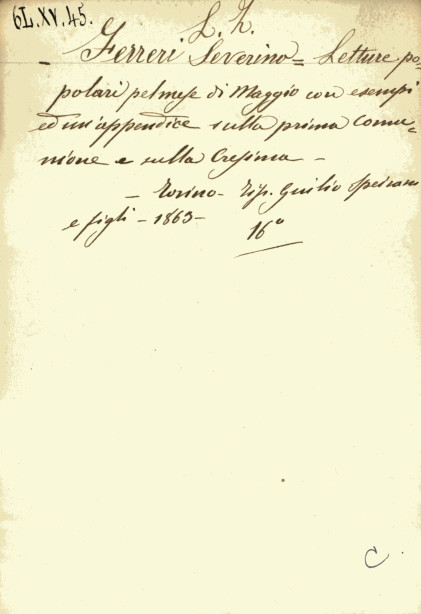 6L.XV.45.
L. h.
- Ferreri Severino = Letture po=
polari pel mese di Maggio con esempi
ed un'appendice sulla prima Comu=
nione e sulla Cresima -
- Torino - Tip. Giulio Speirani
e figli - 1863 -
16°
C.